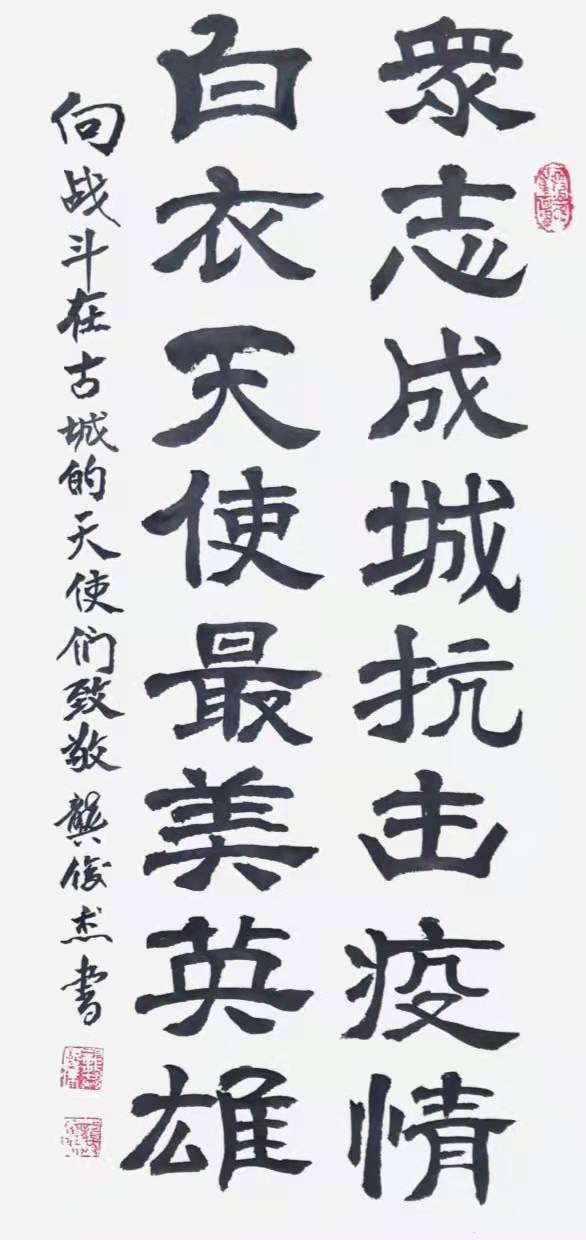 衆志成城抗击疫情
白衣天使最美英雄
向战斗在古城的天使们致敬 龔俊杰书